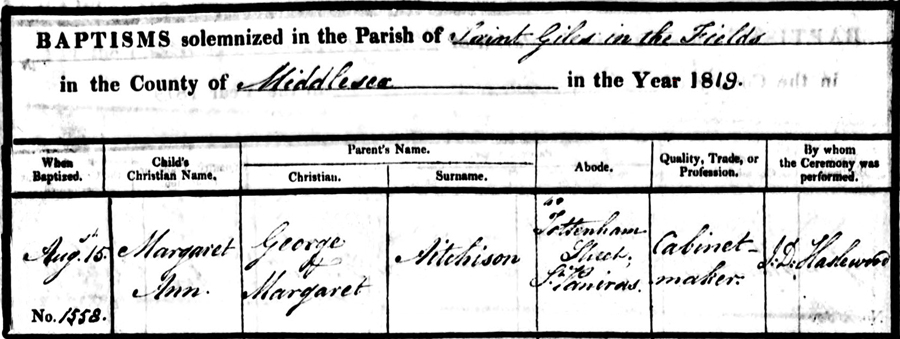 BAPTISMS solemnized in the Parish of Saint Giles in the Fields
in the County of Middlesex in the Year 1819.
When Baptized.
Child's Christian Name.
Parent's Name.
Christian.
Surname.
Abode.
Quality, Trade, or Profession.
By whom the Ceremony was performed.
Augst 15.
No. 1558.
Margaret
Ann.
George
&
Margaret
Aitchison
Tottenham
Street,
St Pancras.
Cabinet-
maker.
J. D. Haslewood